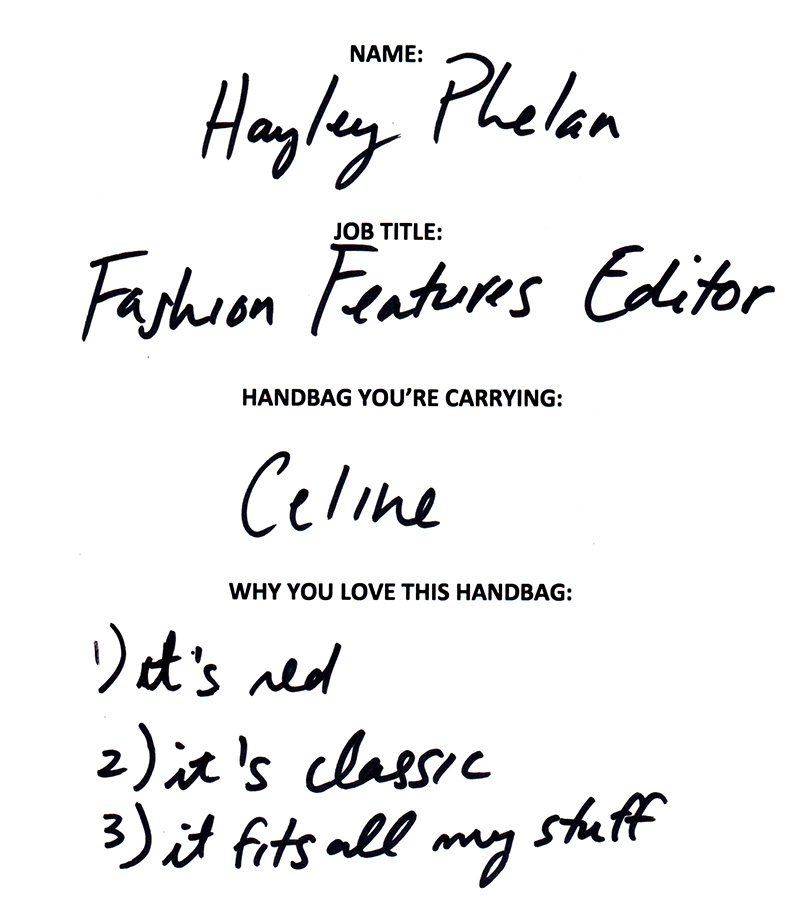 NAME:
Hayley Phelan
JOB TITLE:
Fashion Features Editor
HANDBAG YOU'RE CARRYING:
Celine
WHY YOU LOVE THIS HANDBAG:
1) it's red
2) it's classic
3) it fits all my stuff